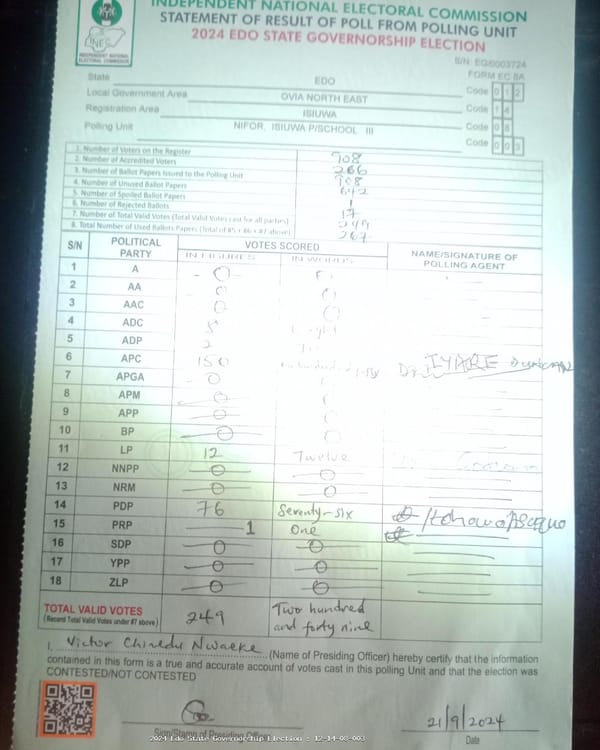 INDEPENDENT NATIONAL ELECTORAL COMMISSION
STATEMENT OF RESULT OF POLL FROM POLLING UNIT
2024 EDO STATE GOVERNORSHIP ELECTION
INEC
INDEPENDENT NATIONAL ELECTORAL COMMISSION
S/N: EG/0003724
FORM EC 8A
State EDO
Local Government Area OVIA NORTH EAST Code 0 1 2
Registration Area ISIUWA Code 1 4
Polling Unit NIFOR, ISIUWA P/SCHOOL III Code 0 8
Code 0 0 3
1. Number of Voters on the Register 908
2. Number of Accredited Voters 266
3. Number of Ballot Papers Issued to the Polling Unit 908
4. Number of Unused Ballot Papers 642
5. Number of Spoiled Ballot Papers 1
6. Number of Rejected Ballots 17
7. Number of Total Valid Votes (Total Valid Votes cast for all parties) 249
8. Total Number of Used Ballots Papers (Total of #5 + #6 + #7 above) 267
S/N POLITICAL PARTY VOTES SCORED NAME/SIGNATURE OF POLLING AGENT
IN FIGURES IN WORDS
1 A 0 0
2 AA 0 0
3 AAC 0 0
4 ADC 8 Eight
5 ADP 2
6 APC 150 IYARE
7 APGA 0
8 APM 0 0
9 APP 0 0
10 BP 0 0
11 LP 12 Twelve
12 NNPP 0 0
13 NRM 0 0
14 PDP 76 Seventy-six
15 PRP 1 One
16 SDP 0 0
17 YPP 0 0
18 ZLP 0 0
TOTAL VALID VOTES 249 Two hundred and forty nine
(Record Total Valid Votes under #7 above)
I, Victor Chinedu Nwaeke (Name of Presiding Officer) hereby certify that the information
contained in this form is a true and accurate account of votes cast in this polling Unit and that the election was
CONTESTED/NOT CONTESTED
21/9/2024
Sign/Stamp of Presiding Officer Date
2024 Edo State Governorship Election : 12-14-08-003